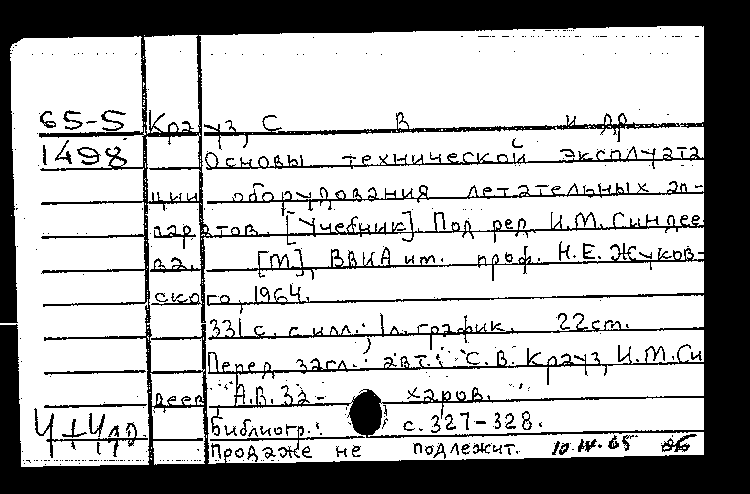 65-5 Крауз, С В и др.
1498 Основы технической эксплуата
ции оборудования летательных ап-
паратов. [Учебник]. Под ред. И.М. Синдее
ва. [М.], ВВИА им. проф. Н.Е. Жуков-
ского, 1964.
331 с. с илл.; 1 л. график. 22 см.
Перед загл.: авт.: С.В. Крауз, И.М. Си
деев, А.В. За- харов.
Библиогр.: с. 327-328.
Продаже не подлежит. 10.IV.65